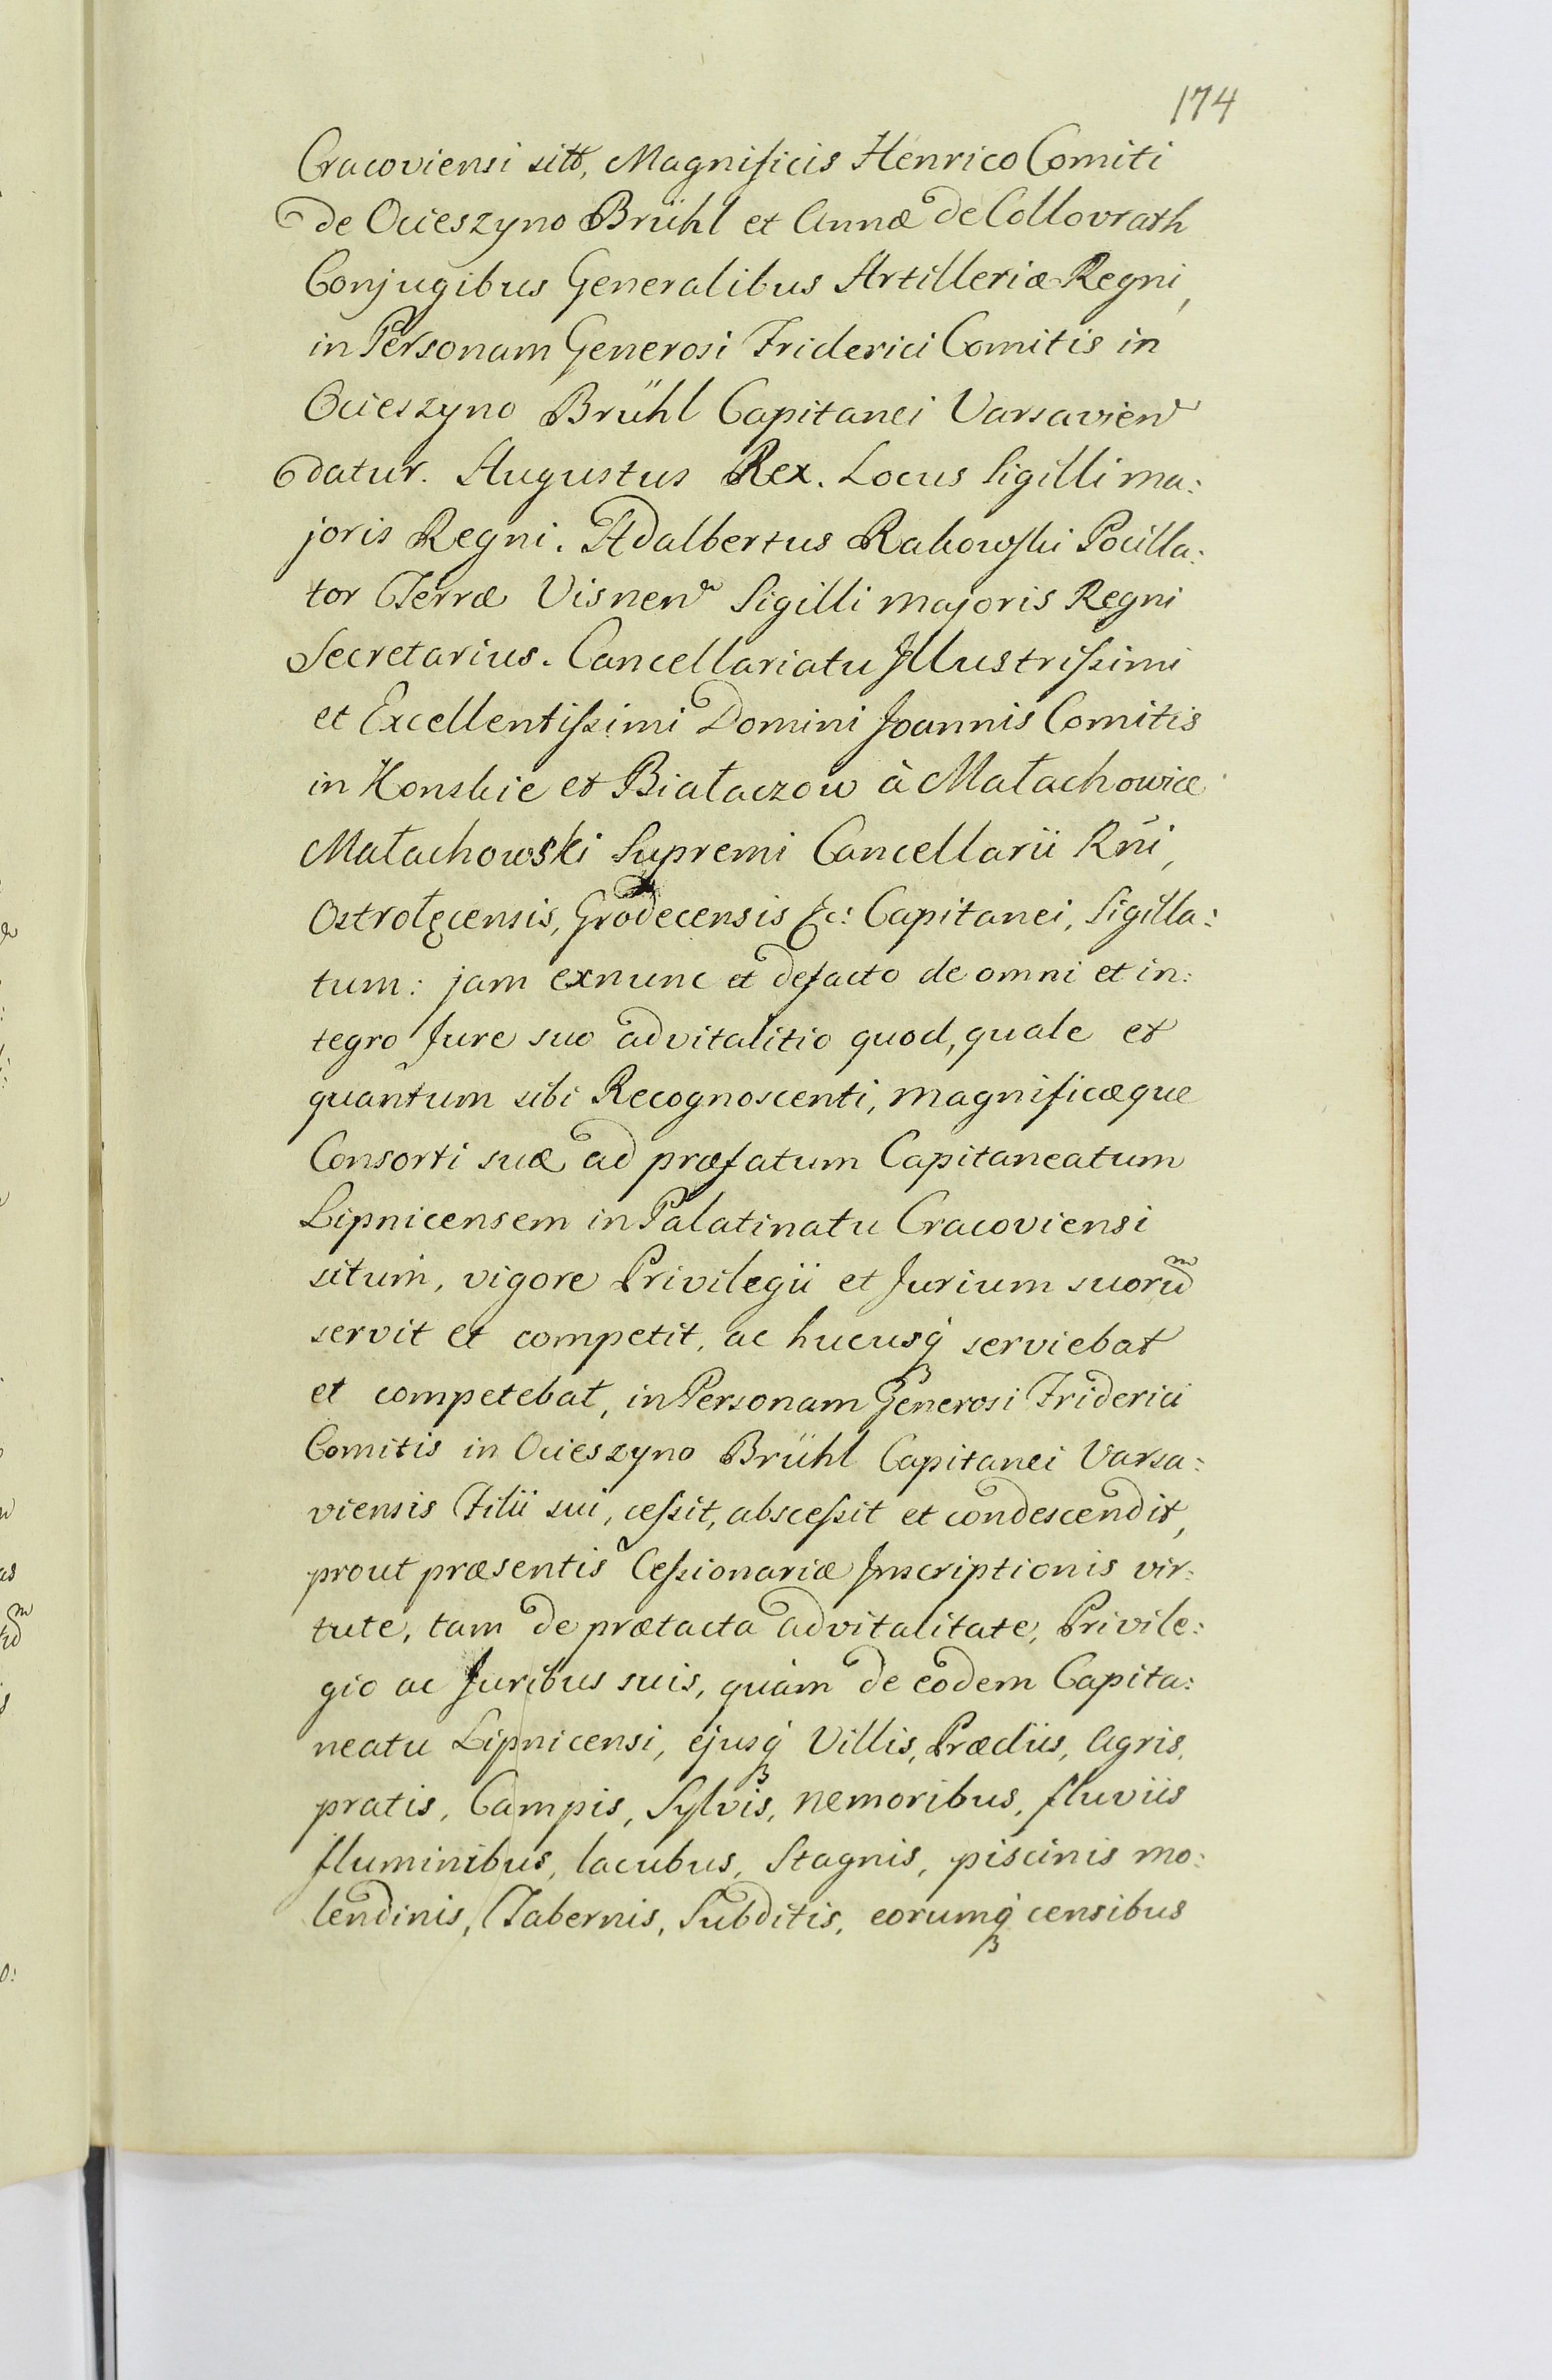 174
Cracoviensi sitō, Magnificis Henrico Comiti
de Ocieszyno Brühl et Annæ de Collovrath
Conjugibus Generalibus Artilleriæ Regni,
in Personam Generosi Friderici Comitis in
Ocieszyno Brühl Capitanei Varsavien
datur. Augustus Rex. Locus Sigilli ma:
joris Regni. Adalbertus Rakowski Pocilla:
tor Terræ Visnen Sigilli majoris Regni
Secretarius. Cancellariatu Jllustrissimi
et Excellentissimi Domini Joannis Comitis
in Konskie et Białaczow à Małachowice
Małachowski Supremi Cancellarii Rni,
Ostrołęcensis, Grodecensis &c: Capitanei, Sigilla:
tum: jam exnunc et defacto de omni et in:
tegro Jure suo advitalitio quod, quale et
quantum sibi Recognoscenti, magnificæque
Consorti suæ ad præfatum Capitaneatum
Lipnicensem in Palatinatu Cracoviensi
situm, vigore Privilegii et Jurium suorum
servit et competit, ac hucusq́ serviebat
et competebat, in Personam Generosi Friderici
Comitis in Ocieszyno Brühl Capitanei Varsa:
viensis Filii sui, cessit, abscessit et condescendit,
prout præsentis Cessionariæ Jnscriptionis vir:
tute, tam de prætacta advitalitate, Privile:
gio ac Juribus suis, quàm de eodem Capita:
neatu Lipnicensi, ejusq́ Villis, Prædiis, Agris,
pratis, Campis, Sylvis, nemoribus, fluviis
fluminibus, lacubus, Stagnis, piscinis mo:
lendinis, Tabernis, Subditis, eorumq́ censibus